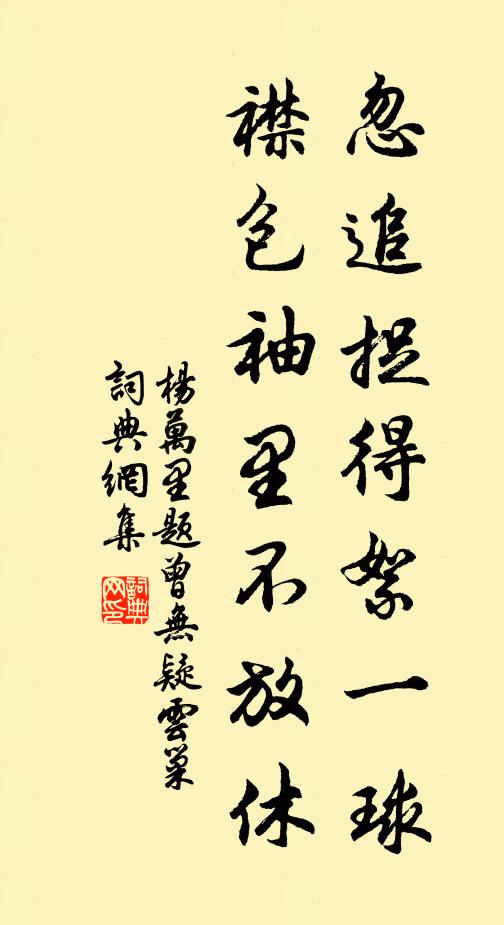 忽追捉得絮一球
襟包袖里不放休
楊萬里題曾無疑雲巢
詞典網集
詞典网印